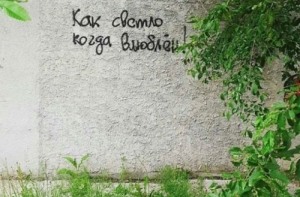 Как светло
когда влюблён!